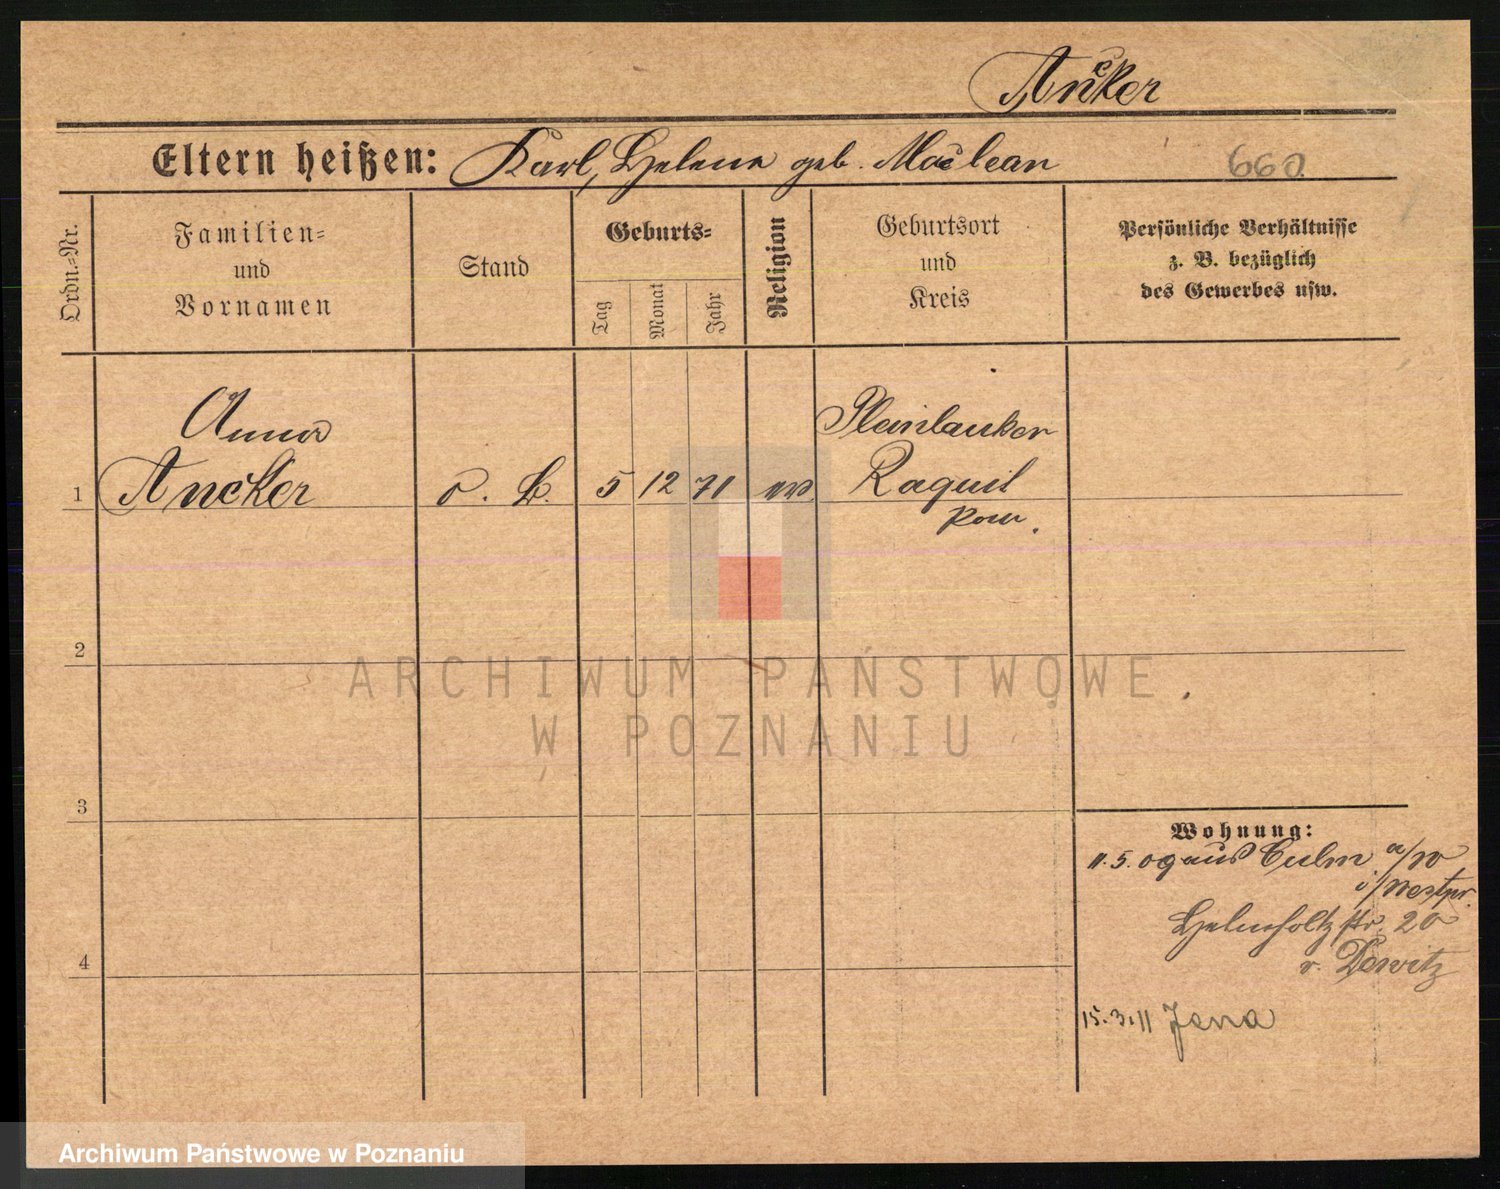 Ancker
Eltern heißen: Karl, Helene geb. Maclean
660
Ordn.=Nr.
Familien=
und
Vornamen
Stand
Geburts=
Tag
Monat
Jahr
Religion
Geburtsort
und
Kreis
Persönliche Verhältnisse
z. B. bezüglich
des Gewerbes usw.
1
Anna
Ancker
o. B.
5 12 71
Ragnit
2
3
4
Wohnung:
11.5.09 aus Culm a/W
i/Westpr.
Helmholtzstr. 20
v. Dewitz
15.3.11 Jena
ARCHIWUM PAŃSTWOWE
W POZNANIU
Archiwum Państwowe w Poznaniu